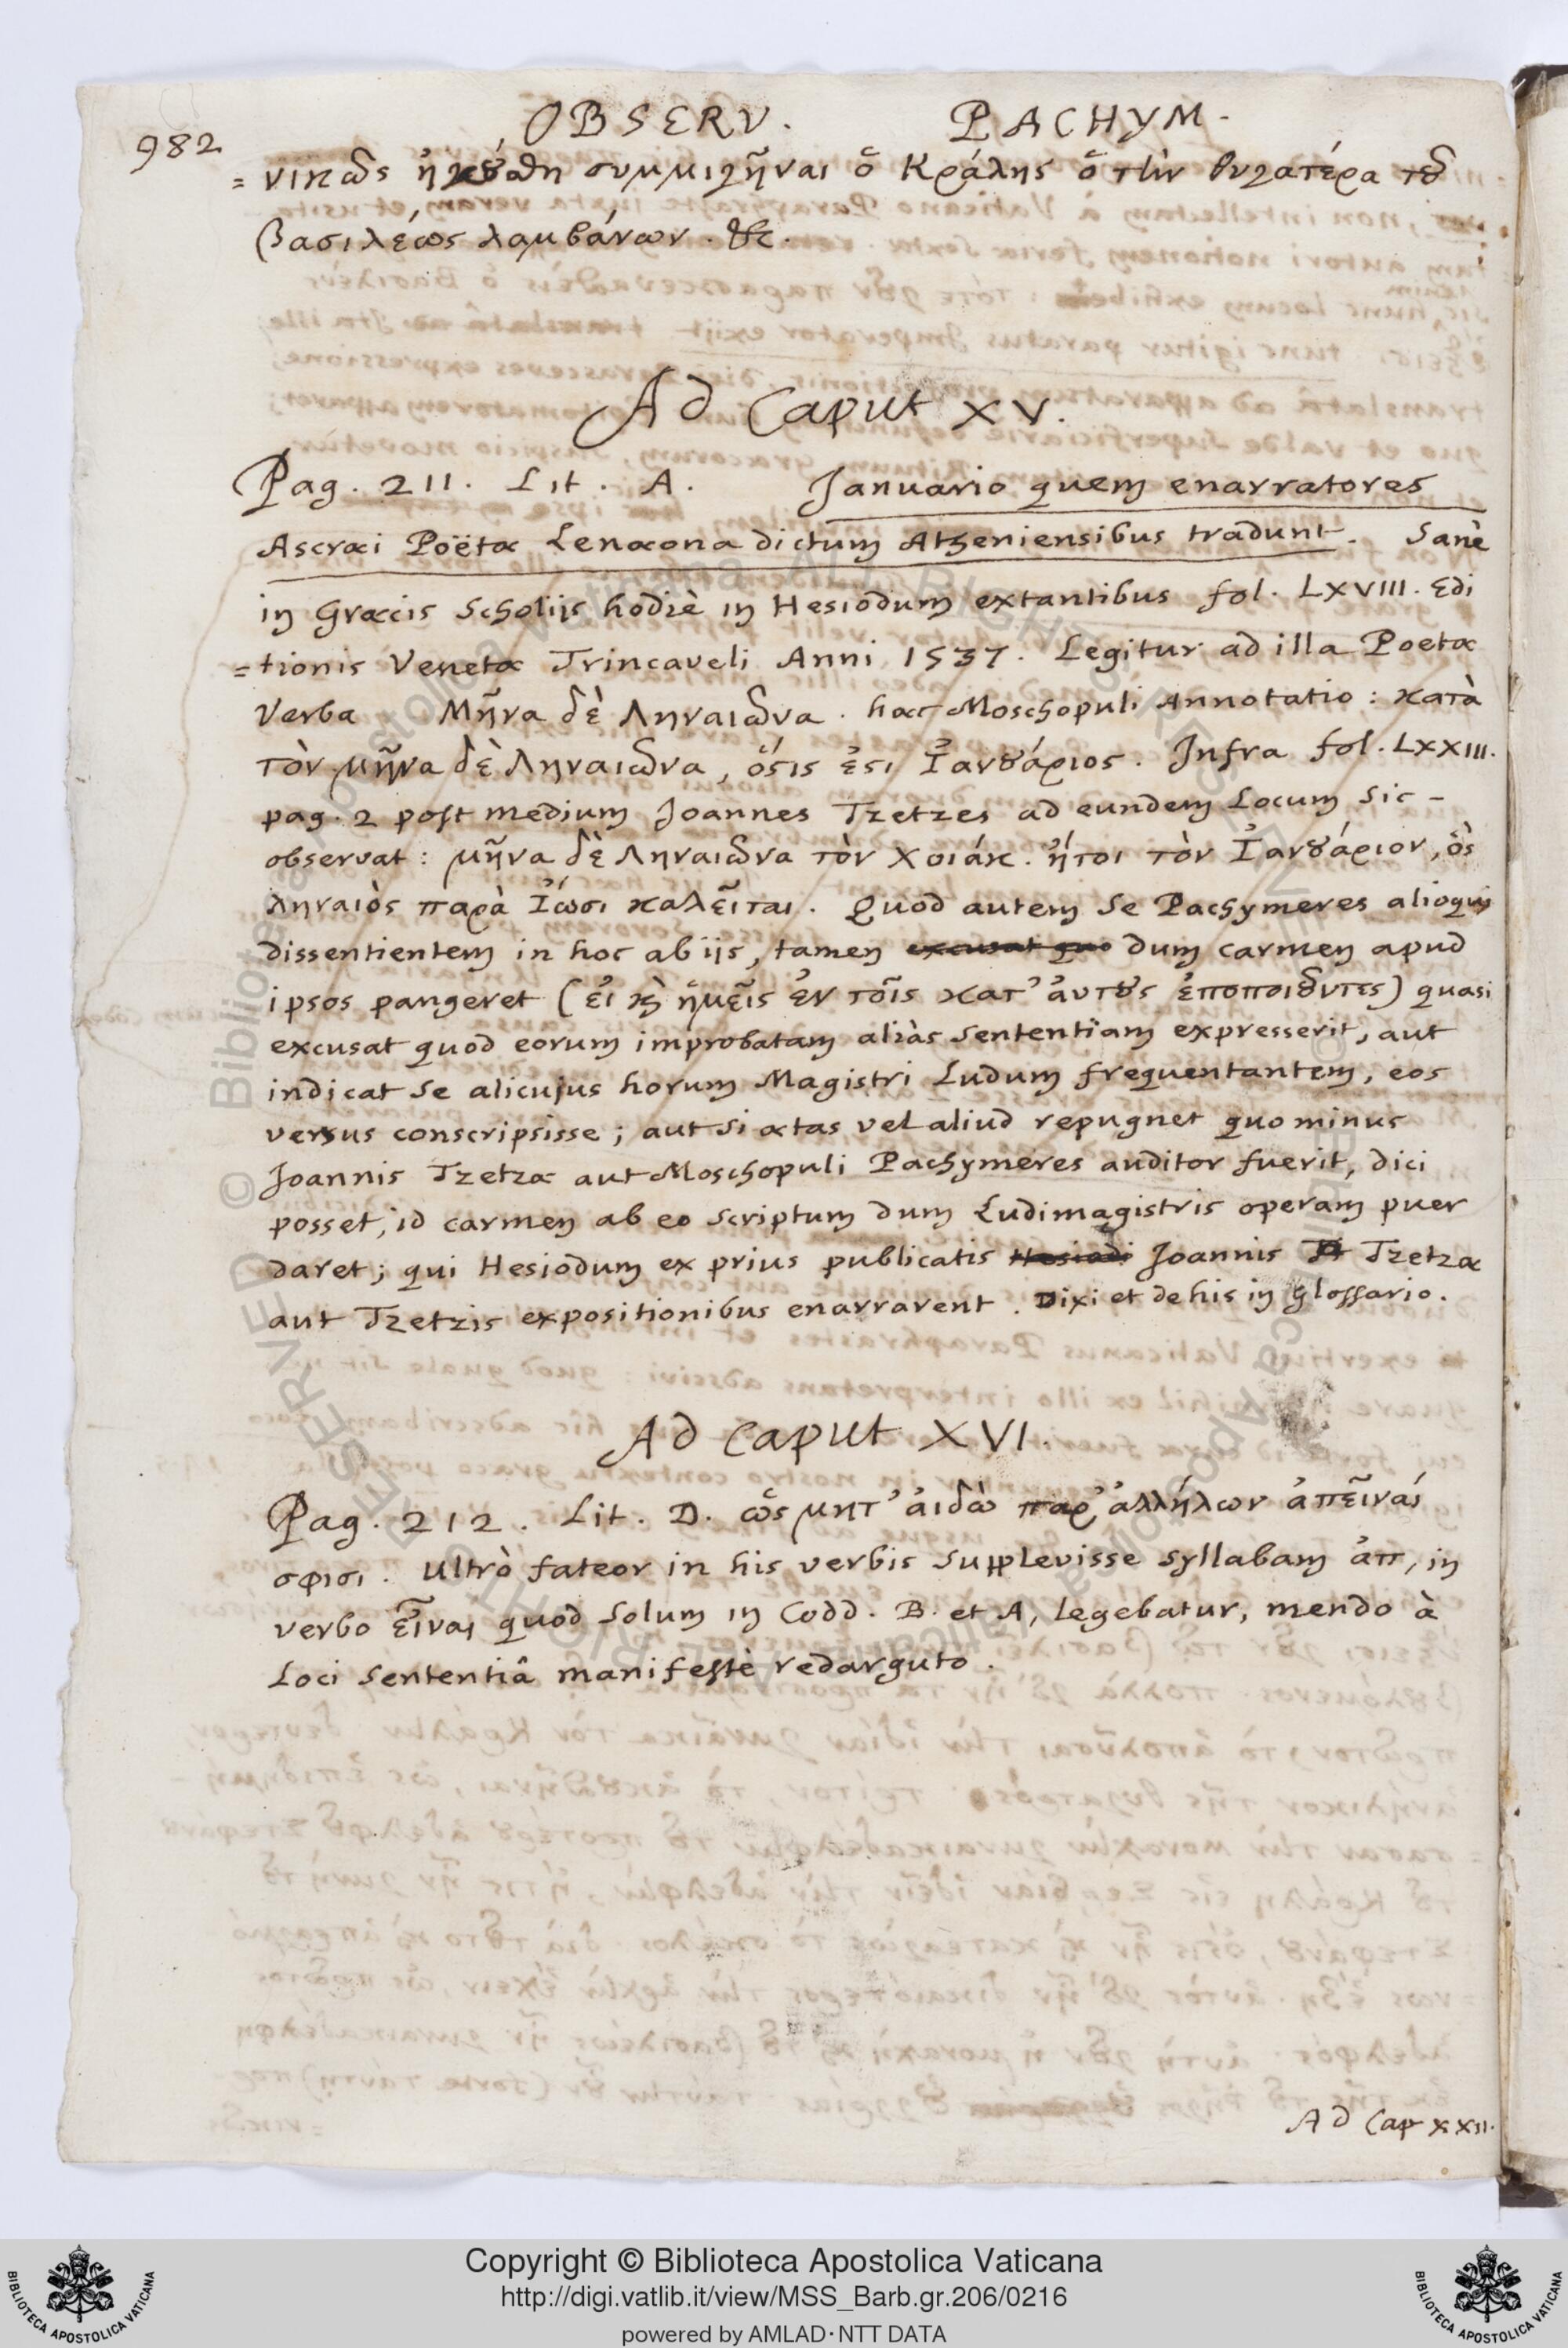 982
OBSERV. PACHYM.
=νικῶς ἠκούσθη συμμιγῆναι ὁ Κράλης ὁ τὴν θυγατέρα τοῦ
βασιλέως λαμβάνων. &c.
Ad Caput XV.
Pag. 211. Lit. A. Januario quem enarratores
Ascræi Poëtæ Lenæona dictum Atheniensibus tradunt. Sanè
in Græcis Scholijs hodiè in Hesiodum extantibus fol. LXVIII. Edi
=tionis Venetæ Trincaveli Anni 1537. Legitur ad illa Poetæ
Verba Μῆνα δὲ Ληναιῶνα. hæc Moschopuli Annotatio: κατὰ
τὸν μῆνα δὲ Ληναιῶνα, ὅστις ἐστὶ Ἰανουάριος. Infra fol. LXXIII.
pag. 2 post medium Joannes Tzetzes ad eundem Locum sic -
observat: μῆνα δὲ Ληναιῶνα τὸν Χοιάκ. ἤτοι τὸν Ἰανουάριον, ὃς
ληναιὸς παρὰ Ἴωσι καλεῖται. Quod autem se Pachymeres alioqui
dissentientem in hoc ab ijs, tamen excusat quo dum carmen apud
ipsos pangeret (εἰ καὶ ἡμεῖς ἐν τοῖς κατ' αὐτοὺς ἐποποιοῦντες) quasi
excusat quod eorum improbatam aliàs sententiam expresserit, aut
indicat se alicujus horum Magistri Ludum frequentantem, eos
versus conscripsisse; aut si ætas vel aliud repugnet quo minus
Joannis Tzetzæ aut Moschopuli Pachymeres auditor fuerit, dici
posset, id carmen ab eo scriptum dum Ludimagistris operam puer
daret; qui Hesiodum ex prius publicatis Hesiodi Joannis Tzetzæ
aut Tzetzis expositionibus enarrarent. Dixi et de his in Glossario.
Ad Caput XVI.
Pag. 212. Lit. D. ὡς μητ' αἰδὼ παρ' ἀλλήλων ἀπεῖναί
σφισι. Ultrò fateor in his verbis supplevisse syllabam ἀπ, in
verbo εἶναι quod solum in Codd. B. et A, legebatur, mendo à
Loci sententiâ manifestè redarguto.
Ad Cap XXII.
Copyright © Biblioteca Apostolica Vaticana
http://digi.vatlib.it/view/MSS_Barb.gr.206/0216
powered by AMLAD·NTT DATA
BIBLIOTECA APOSTOLICA VATICANA
BIBLIOTECA APOSTOLICA VATICANA